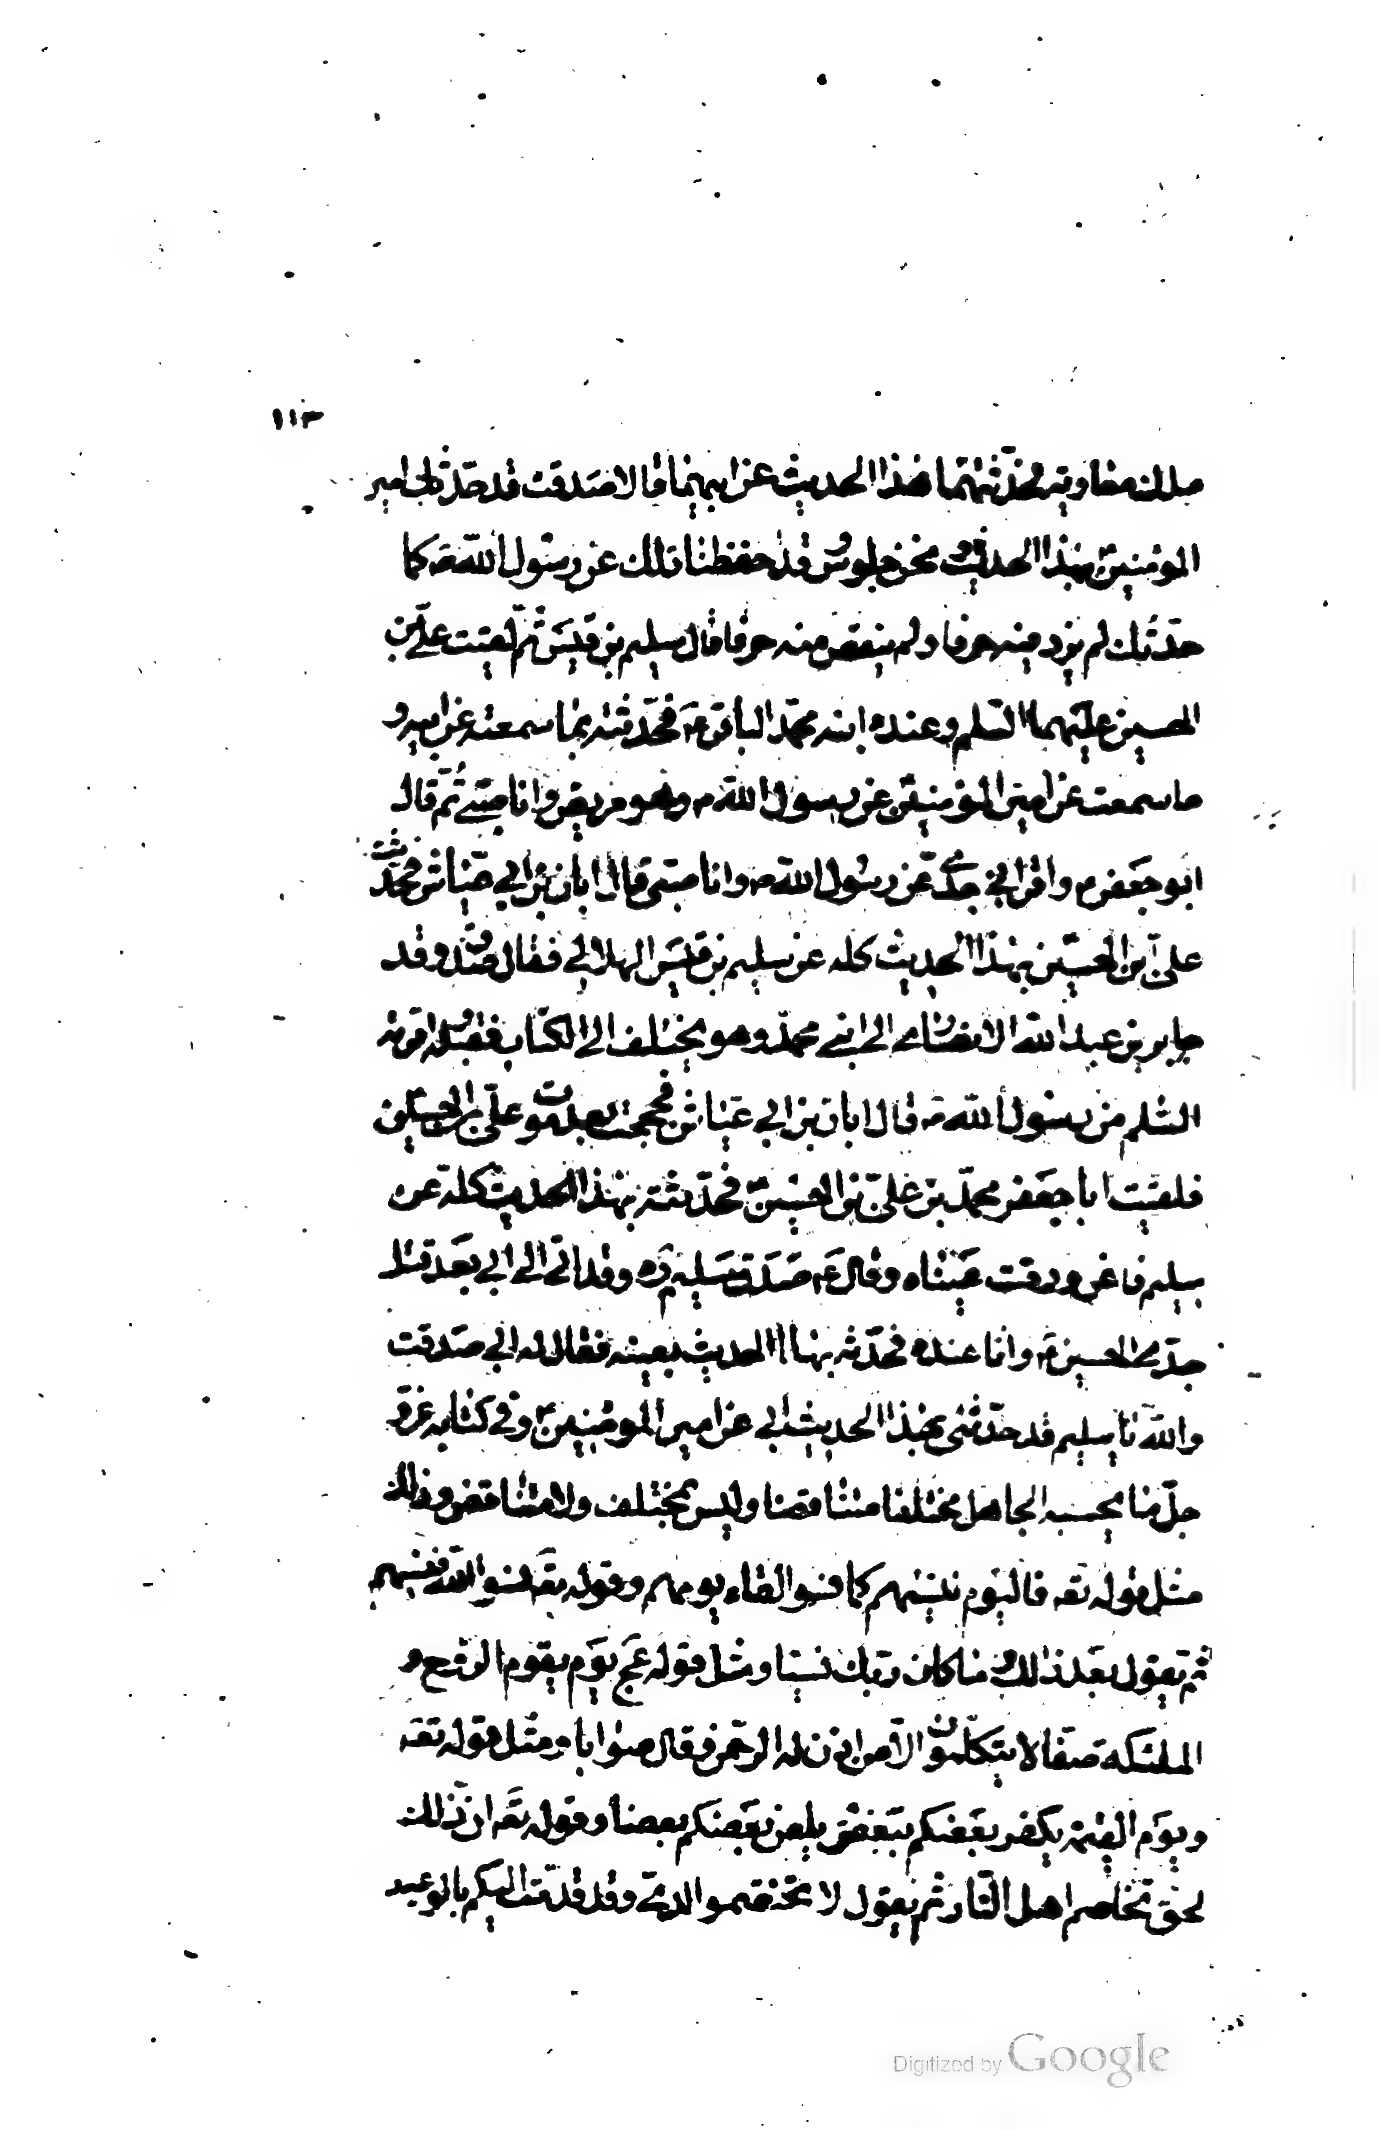 ١١٣
ملك معاوية فحدّثتهما بهذا الحديث عن ابيهما قالا صدقت قد حدّثك ابى امير
المؤمنينؑ بهذا الحديث ونحن جلوس قد حفظنا ذلك عن رسول اللهؐ كما
حدّثك لم يزد فيه حرفا ولم ينقص منه حرفا قال سليم بن قيس ثمّ لقيت علىّ بن
الحسين عليهما السّلم وعنده ابنه محمّد الباقرؑ فحدّثته بما سمعته عن ابيه و
ما سمعت عن امير المؤمنينؑ عن رسول اللهؐ وهو مريض وانا صبىّ ثمّ قال
ابو جعفرؑ واقرانى جدّى عن رسول اللهؐ وانا صبى قال ابان بن ابى عيّاش فحدّثت
علىّ ابن الحسين بهذا الحديث كله عن سليم بن قيس الهلالى فقال صدق وقد
جابر بن عبد الله الانصارى الى ابنى محمّد وهو يختلف الى الكتاب فقبله واقرئه
السّلم من رسول اللهؐ قال ابان بن ابى عيّاش فحججت بعد موت علىّ بن الحسينؑ
فلقيت ابا جعفر محمّد بن علىّ بن الحسينؑ فحدّثته بهذا الحديث كلّه عن
سليم فاغرورقت عيناه وقالؑ صدق سليم ره وقد اتى الى ابى بعد قتل
جدّى الحسينؑ وانا عنده فحدّثه بهذا الحديث بعينه فقال له ابى صدقت
والله يا سليم قد حدّثنى بهذا الحديث ابى عن امير المؤمنينؑ وفى كتابه عزّ و
جلّ ما يحسبه الجاهل مختلفا متناقضا وليس بمختلف ولا متناقض وذلك
مثل قوله تعه فاليوم ننسيهم كما نسوا لقاء يومهم وقوله تعه نسوا الله فنسيهم
ثم يقول بعد ذلك وما كان ربّك نسيّا ومثل قوله عج يوم يقوم الروح و
الملئكة صفّا لا يتكلّمون الّا من اذن له الرحمن وقال صوابا ومثل قوله تعه
ويوم القيمة يكفر بعضكم ببعض ويلعن بعضكم بعضا وقوله تعه ان ذلك
لحق تخاصم اهل النّار ثم يقول لا تختصموا لدىّ وقد قدّمت اليكم بالوعيد
Digitized by Google